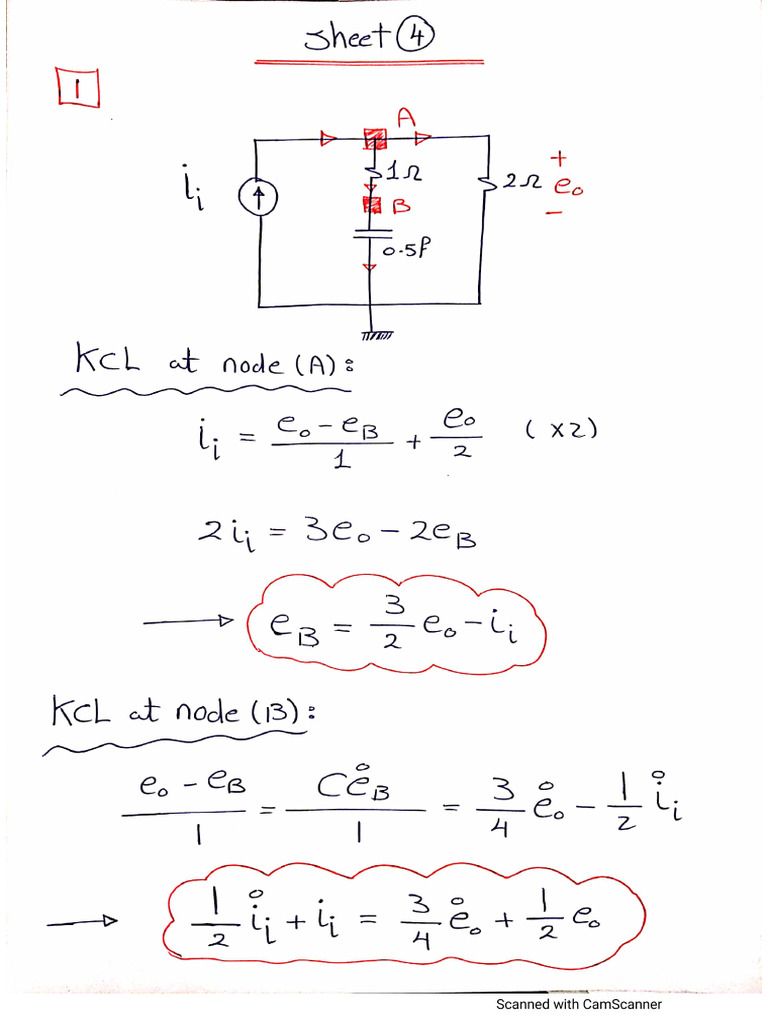 Sheet ④
1
A
i_i
1Ω
2Ω
+
e_o
-
B
0.5f
KCL at node (A):
i_i = (e_o - e_B)/1 + e_o/2 (x2)
2i_i = 3e_o - 2e_B
→ e_B = 3/2 e_o - i_i
KCL at node (B):
(e_o - e_B)/1 = Cė_B/1 = 3/4 ė_o - 1/2 i̇_i
→ 1/2 i̇_i + i_i = 3/4 ė_o + 1/2 e_o
Scanned with CamScanner